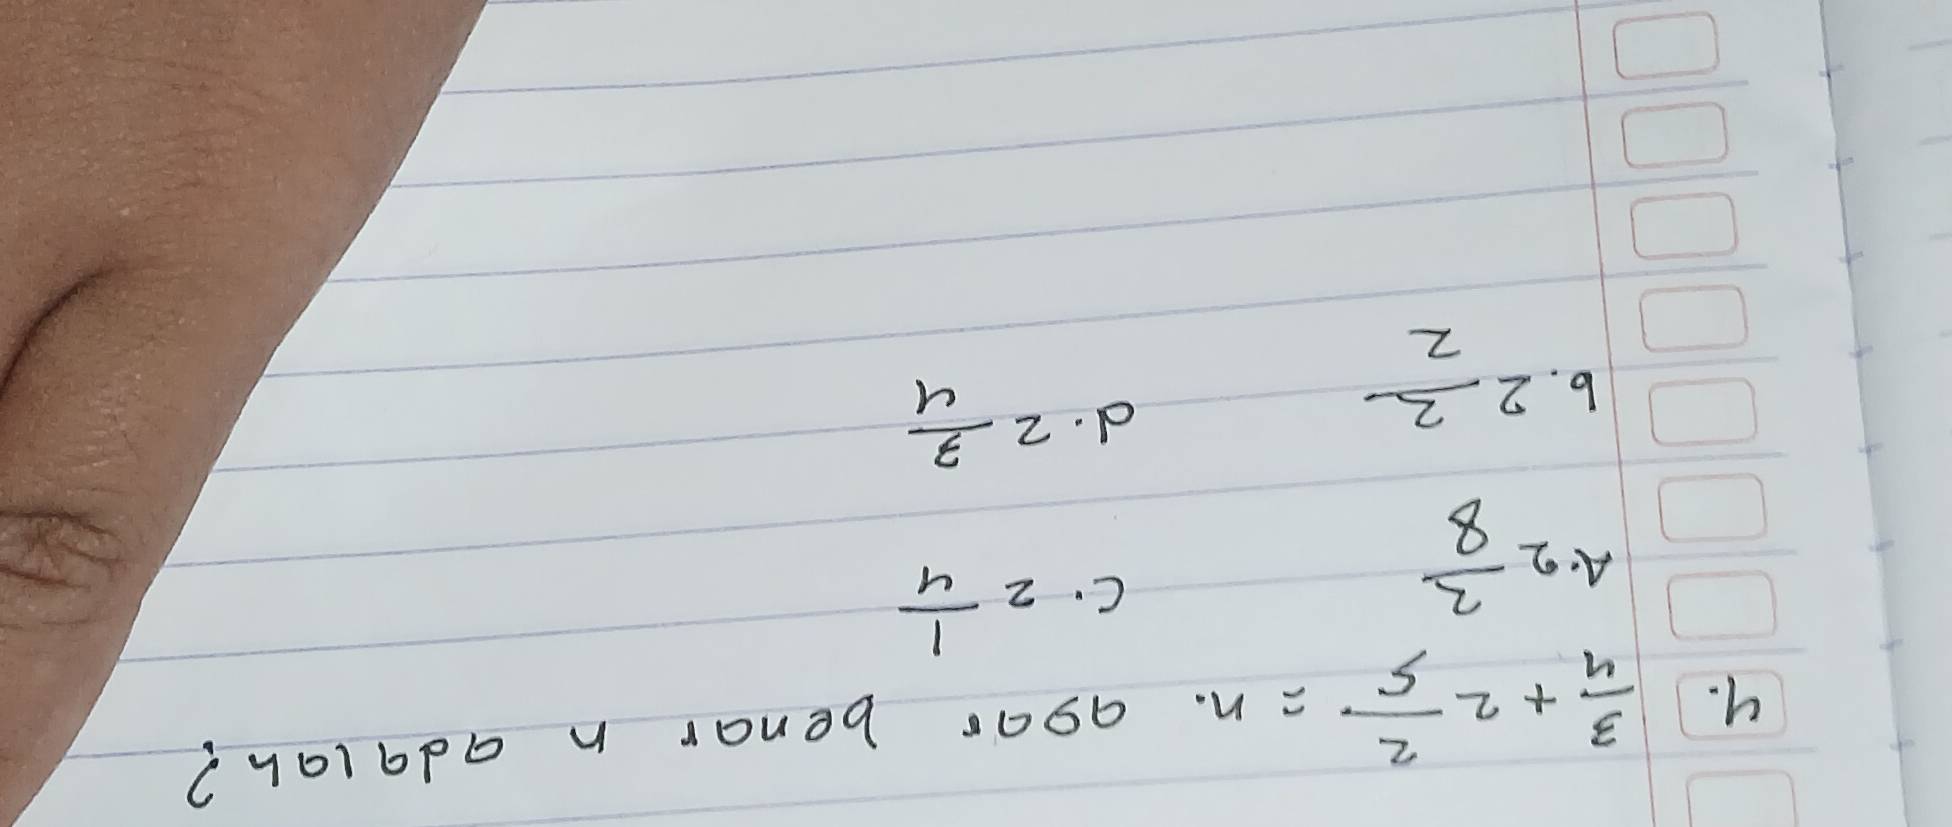 4. 3/4 + 2 2/5 = n. agar benar n adalah?
A. 2 3/8 c. 2 1/4
b. 2 3/2 d. 2 3/4